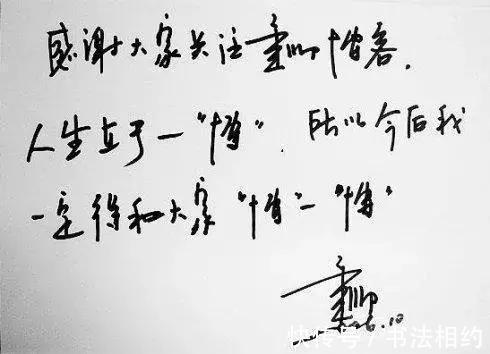 感谢大家关注董卿博客.
人生在于一“博”. 所以今后我
一定得和大家“博”一“博”
董卿
06.10
快传号/书法相约